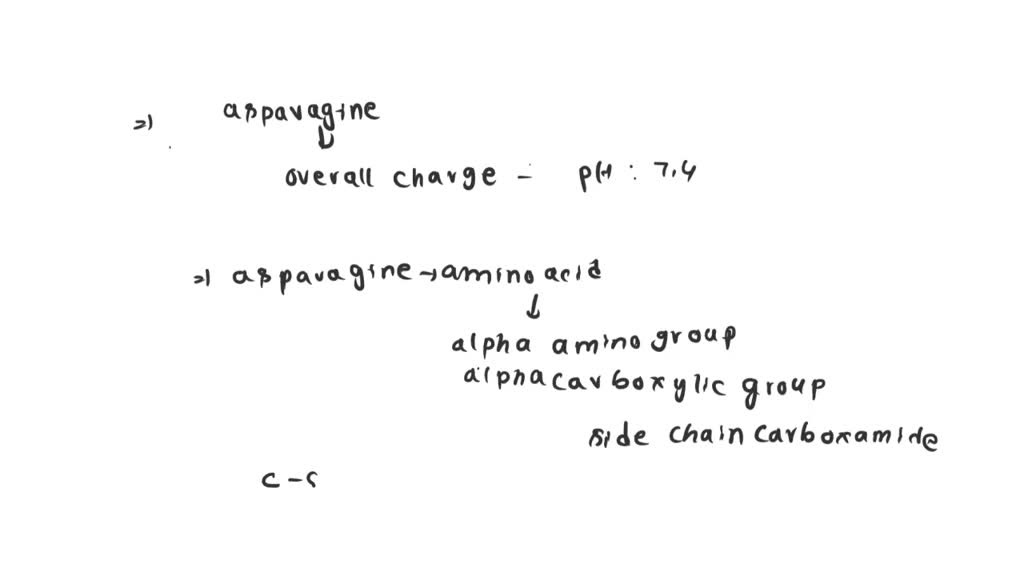 =) asparagine
↓
overall charge - pH : 7.4
=) asparagine → amino acid
↓
alpha amino group
alpha carboxylic group
side chain carboxamide
c-c